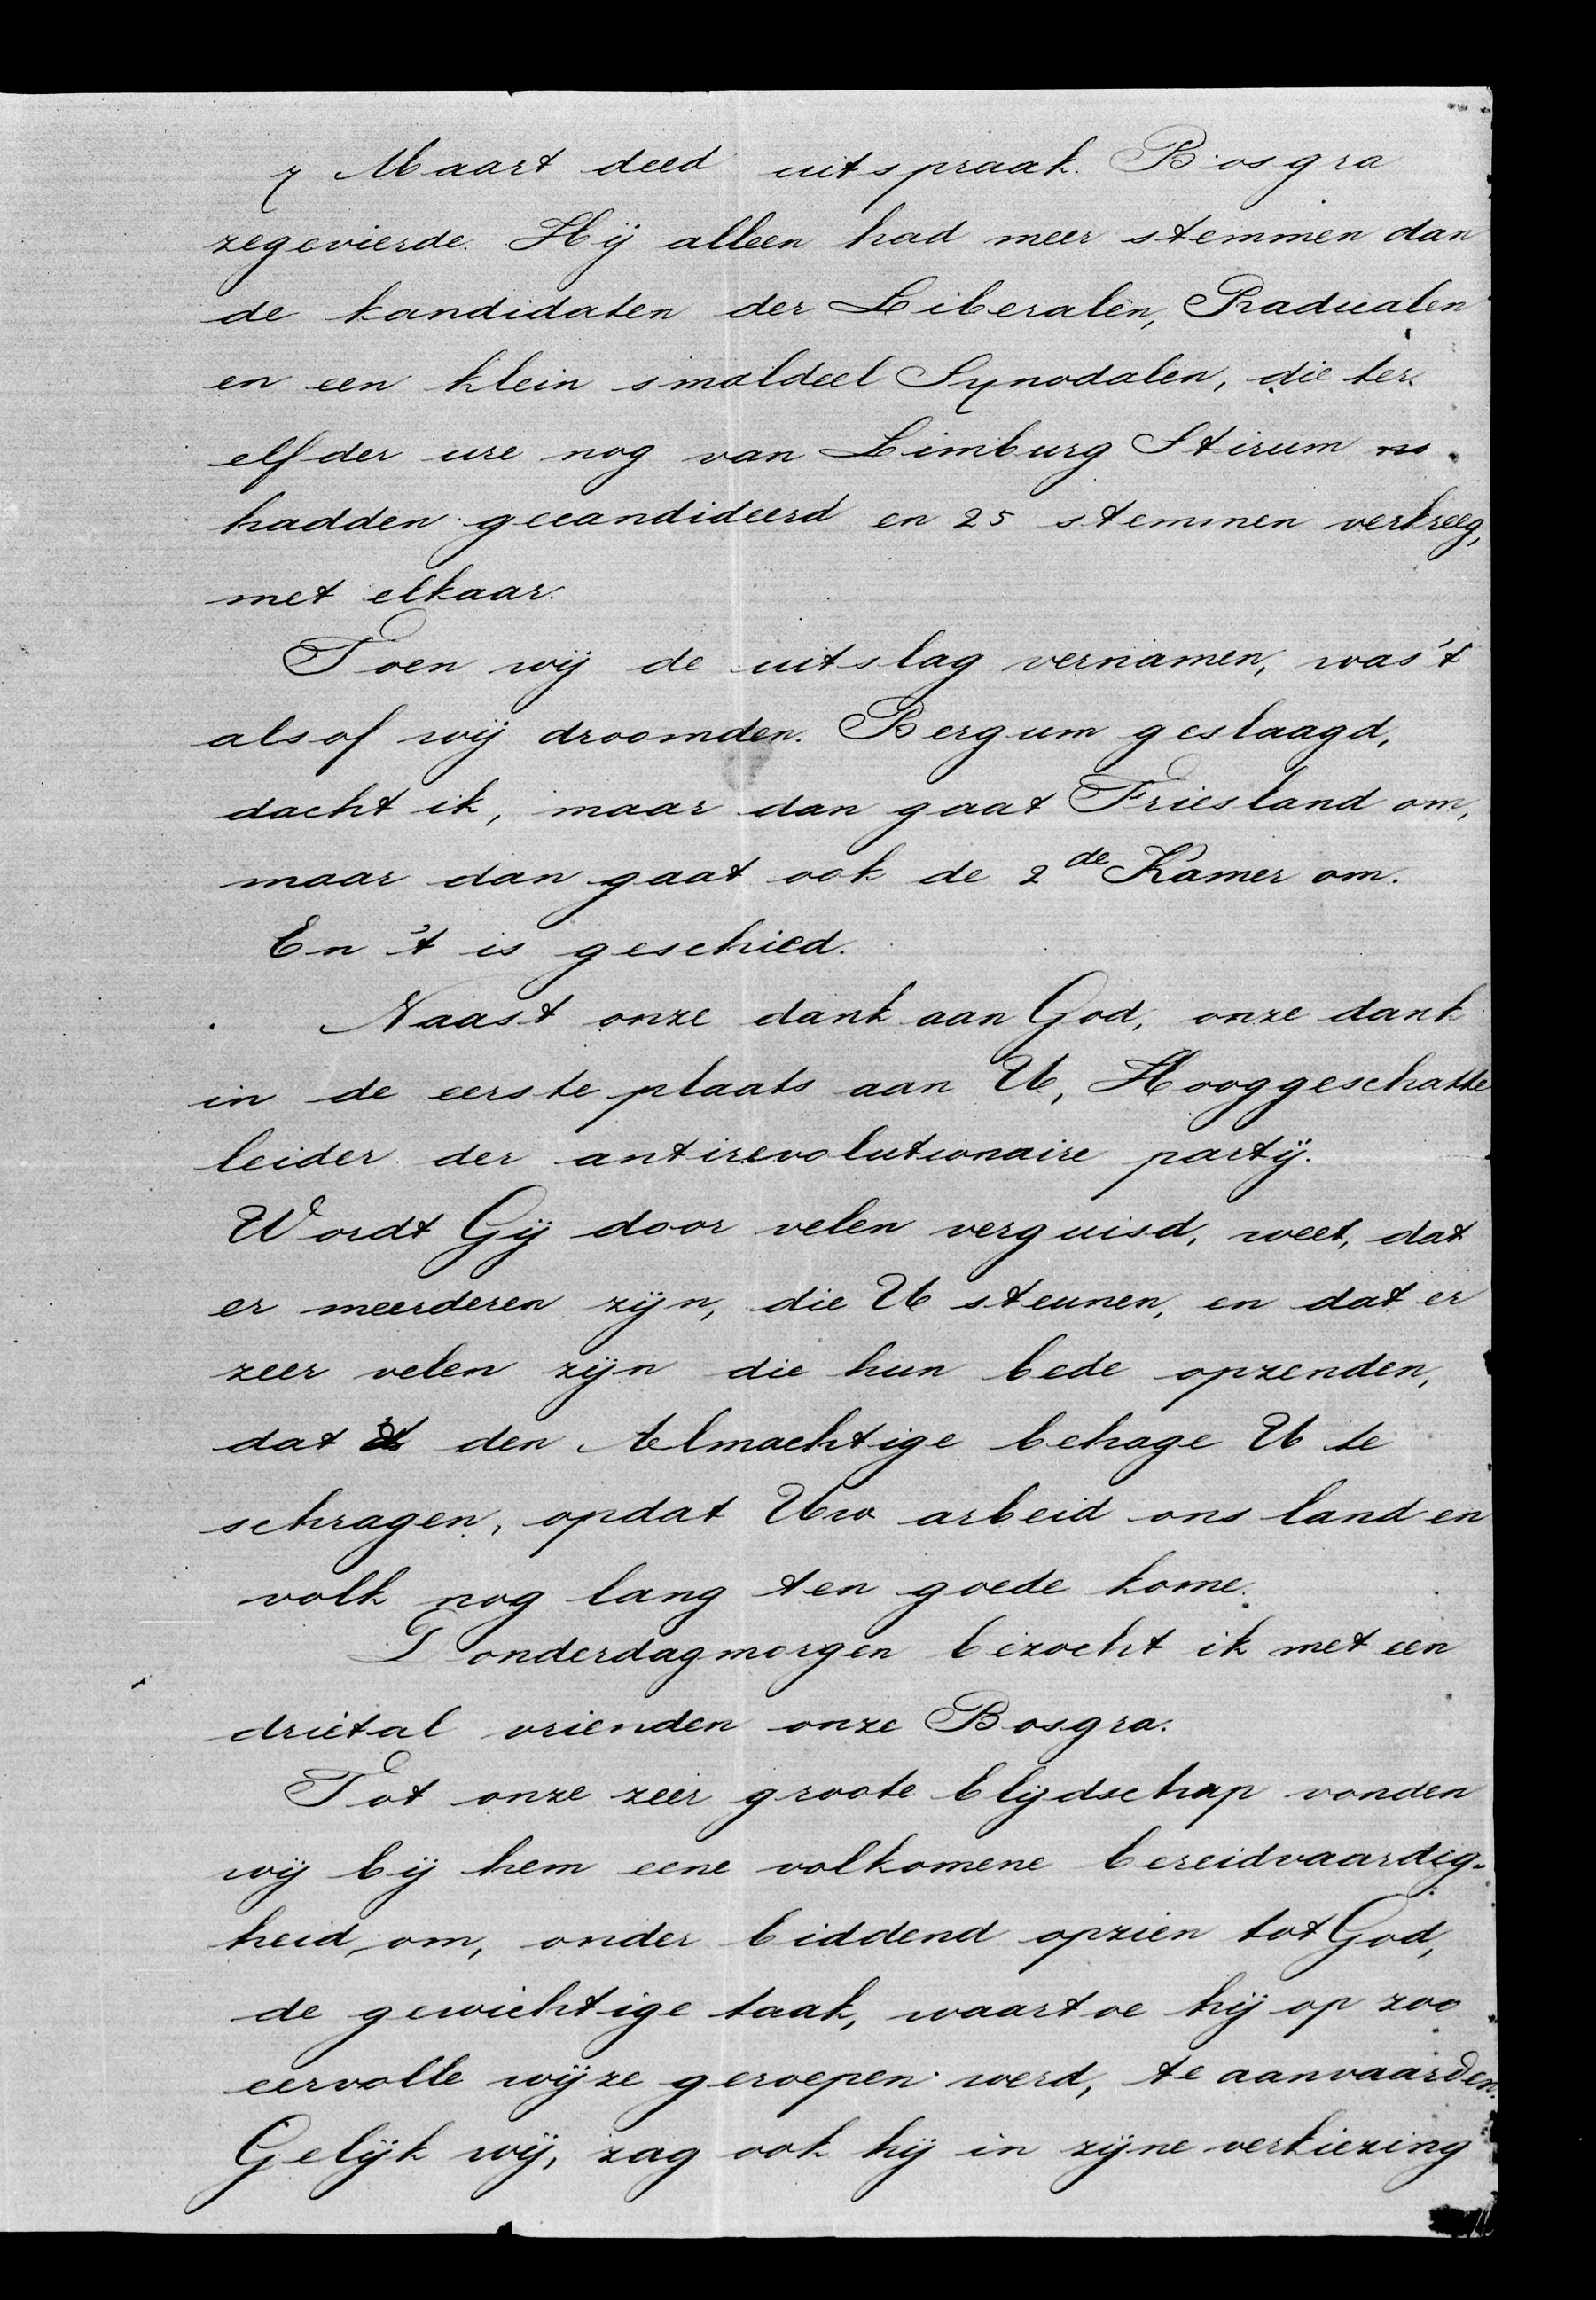 7 Maart deed uitspraak. Bosgra
zegevierde. Hij alleen had meer stemmen dan
de kandidaten der Liberalen, Radicalen
en een klein smaldeel Synodalen, die ter
elfder ure nog van Limburg Stirum
hadden gecandideerd en 25 stemmen verkreeg,
met elkaar.
Toen wij de uitslag vernamen, was 't
alsof wij droomden. Bergum geslaagd,
dacht ik, maar dan gaat Friesland om,
maar dan gaat ook de 2de Kamer om.
En 't is geschied.
Naast onze dank aan God, onze dank
in de eerste plaats aan U, Hooggeschatte
leider der antirevolutionaire partij.
Wordt Gij door velen verguisd, weet, dat
er meerderen zijn, die U steunen, en dat er
zeer velen zijn die hun bede opzenden,
dat 't den Almachtige behage U te
schragen, opdat Uw arbeid ons land en
volk nog lang ten goede kome.
Donderdagmorgen bezocht ik met een
drietal vrienden onze Bosgra.
Tot onze zeer groote blijdschap vonden
wij bij hem eene volkomene bereidvaardig-
heid, om, onder biddend opzien tot God,
de gewichtige taak, waartoe hij op zoo
eervolle wijze geroepen werd, te aanvaarden.
Gelijk wij, zag ook hij in zijne verkiezing